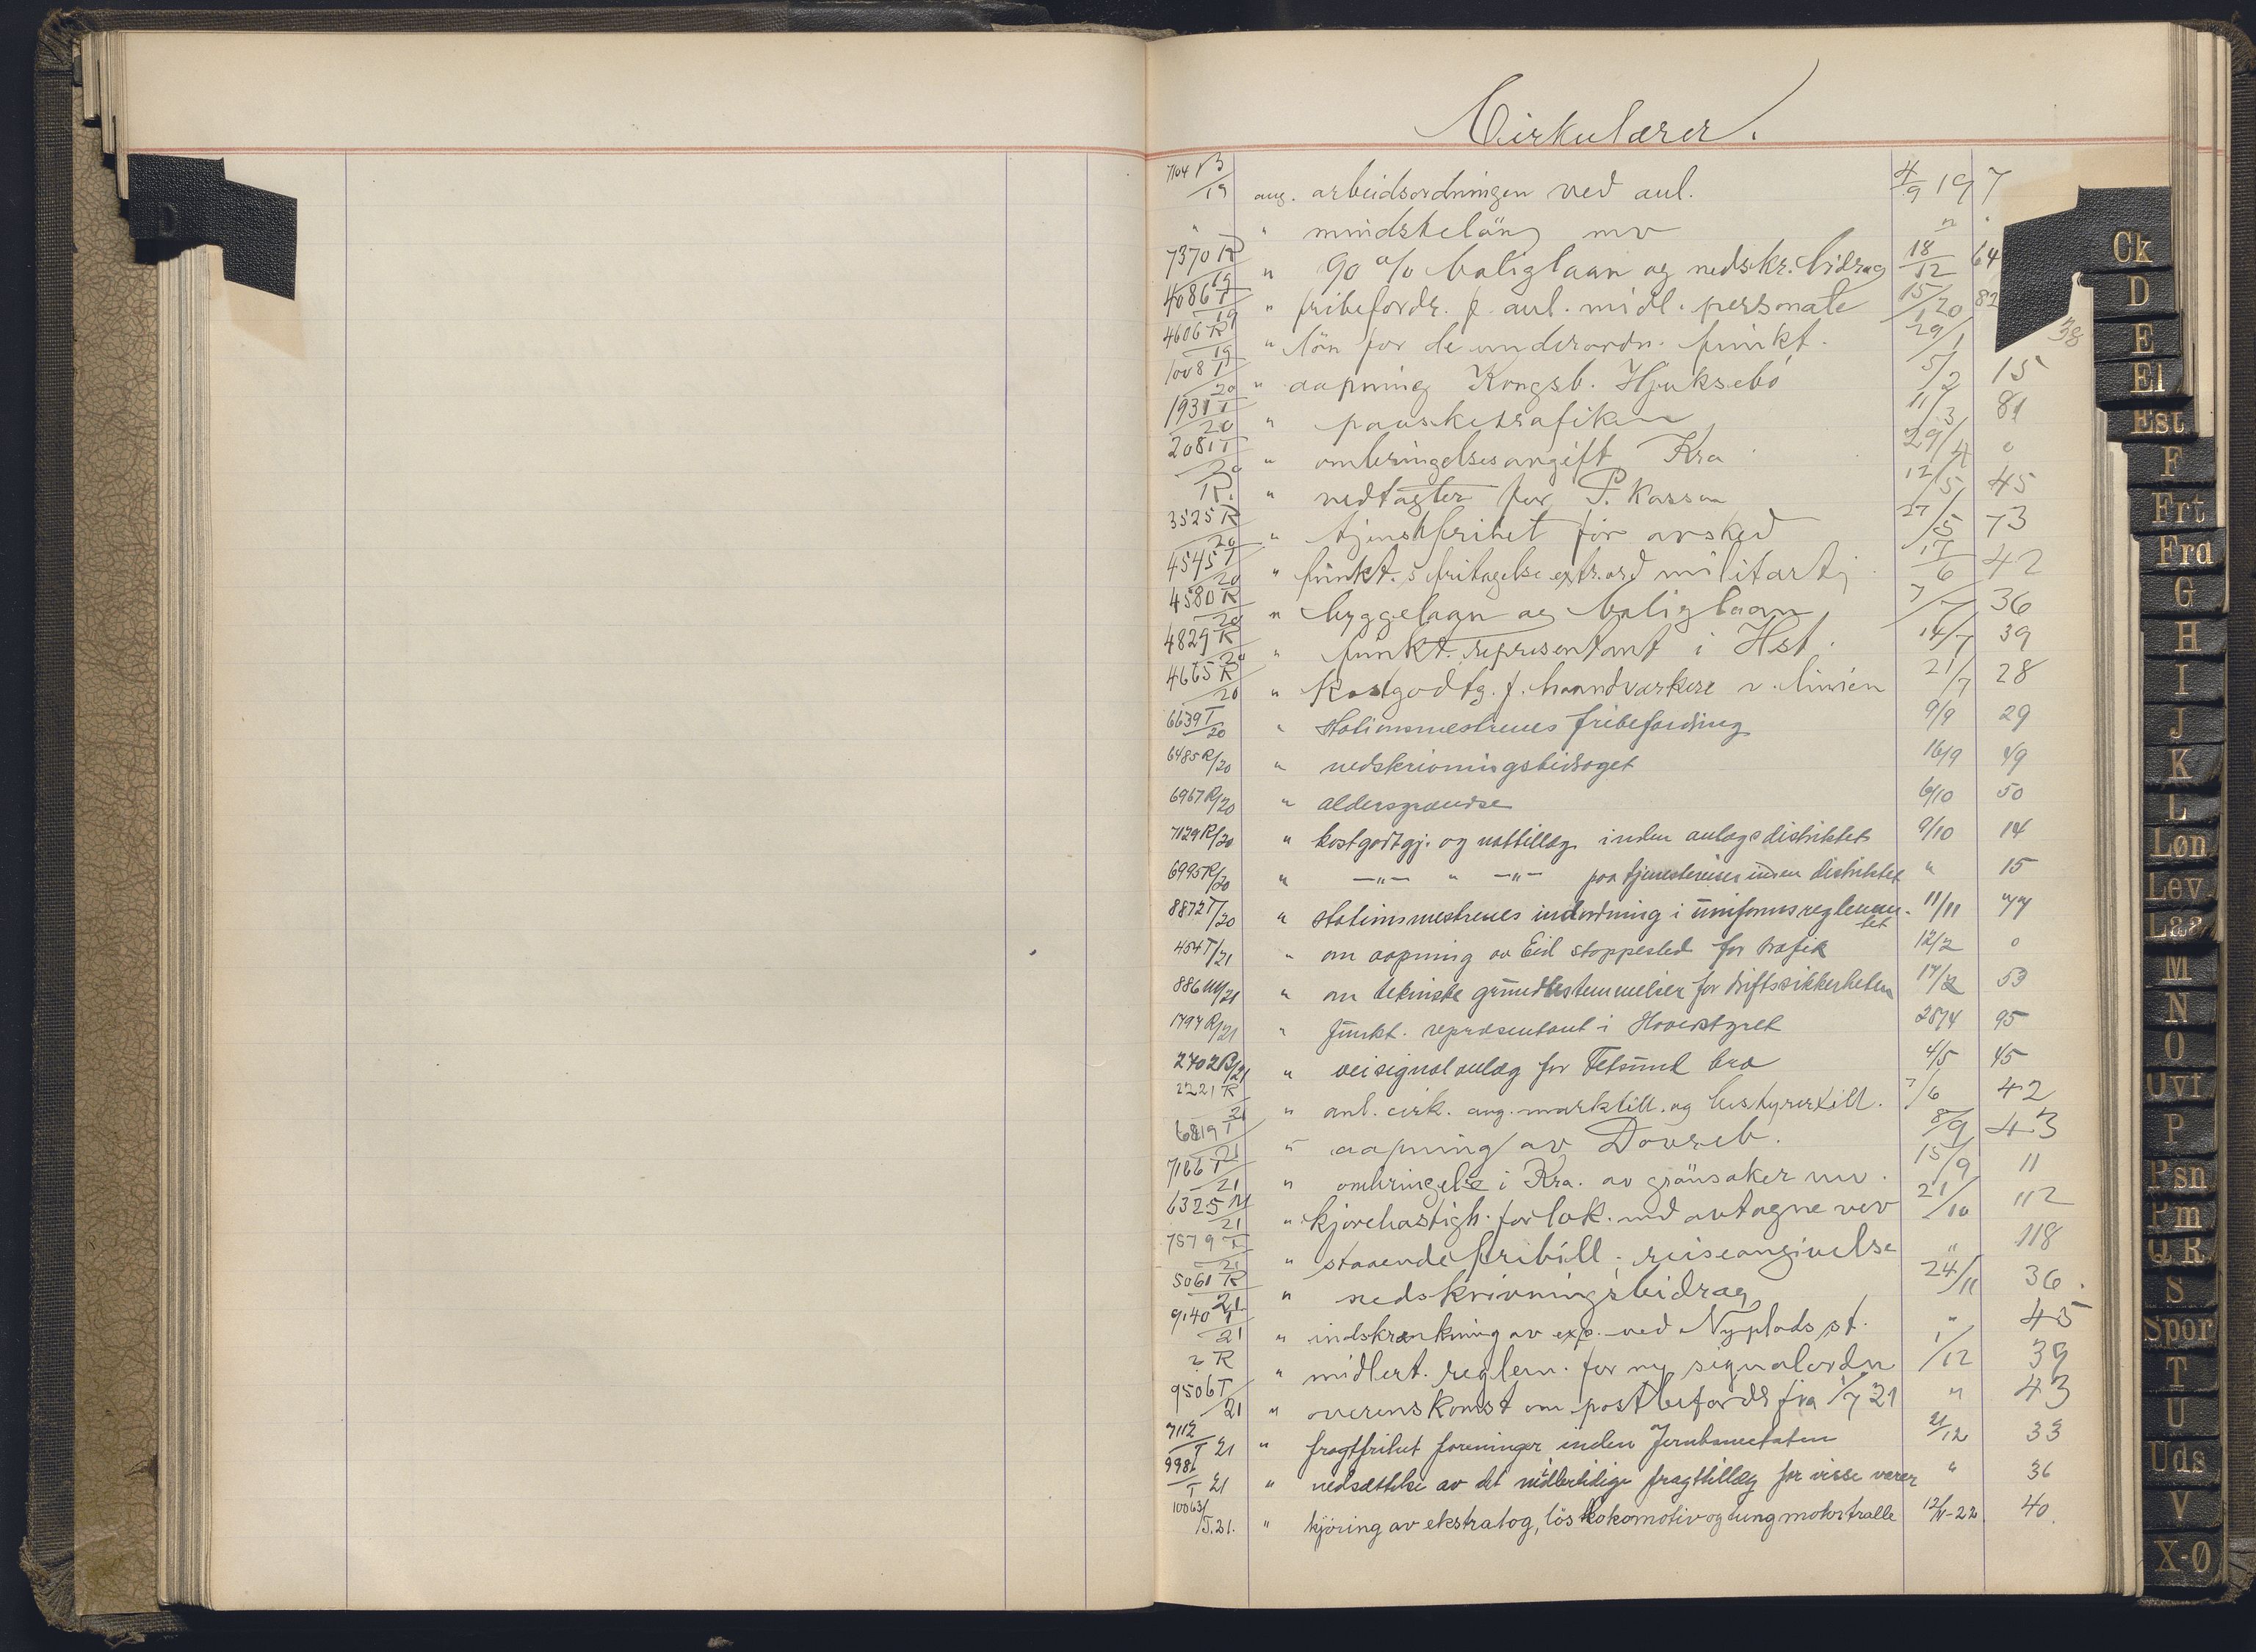 Cirkulærer.
7104 B/19 ang. arbeidsordningen ved anl. 4/9 19 7
" " mindstelön mv " "
7370 R/19 " 90 % boliglaan og nedskr. bidrag 18/12 64
4086 T/19 " fribefordr. f. anl. midl. personale 15/1 20 82
4606 R/19 " lön for de underordn. funkt. 29/1 38
1008 T/20 " aapning Kongsb. Hjuksebö 5/2 15
1931 T/20 " paasketrafiken 11/3 81
2081 T/20 " ombringelsesavgift Kra 29/4 0
R. " vedtægter for P. Kassen 12/5 45
3525 R/20 " tjenstfrihet för avsked 27/5 73
4545 T/20 " funkt.s fritagelse extr.ord militærtj 17/6 42
4580 R/20 " byggelaan og boliglaan 7/7 36
4829 R/20 " funkt. representant i Hst. 14/7 39
4665 R/20 " Kostgodtg. f. haandværkere v. linien 21/7 28
6639 T/20 " Stationsmestrenes fribefordring 9/9 29
6485 R/20 " nedskrivningsbidraget 16/9 49
6967 R/20 " aldersgrændse 6/10 50
7129 R/20 " kostgodtgj. og nattillæg inden anlægsdistriktet 9/10 14
6995 R/20 " —"— " —"— paa tjenestereiser inden distriktet " 15
8872 T/20 " Stationsmestrenes indordning i uniformsreglemen- 11/11 77
tet
454 T/21 " om aapning av Eid stoppested for trafik 12/2 0
886 M/21 " om tekniske grundbestemmelser for driftssikkerheten 17/2 53
1797 R/21 " funkt. repræsentant i Hovedstyret 28/4 95
2702 B/21 " veisignalanlæg for Fetsund bro 4/5 45
2221 R/21 " anl. cirk. ang. markstill. og bestyrertill. 7/6 42
6819 T/21 " aapning av Dovreb. 8/9 43
7186 T/21 " ombringelse i Kra. av grönsaker mv. 15/9 11
6325 M/21 " kjörehastigh. for lok. med avtagne vev 21/10 112
7579 T/21 " staaende fribill. reiseangivelse " 118
5061 R/21 " nedskrivningsbidrag 24/11 36.
9140 T/21 " indskrænkning av exp. ved Nyplads st. " 45
? R " midlert. reglem. for ny signalordn 1/12 39
9506 T/21 " overenskomst om postbefordr fra 1/7 21 " 43
7112/T 21 " fragtfrihet foreninger inden Jernbaneetaten 21/12 33
998/T 21 " nedsættelse av det midlertidige fragttillæg for visse varer " 36
10063/T.21. " kjöring av ekstratog, lös lokomotiv og tung motortralle 12/1-22 40.
Ck
D
E
El
Est
F
Frt
Frd
G
H
I
J
K
L
Løn
Lev
Laa
M
N
O
Ovf
P
Psn
Rm
Q R
S
Spor
T
U
Uds
V
X-Ø